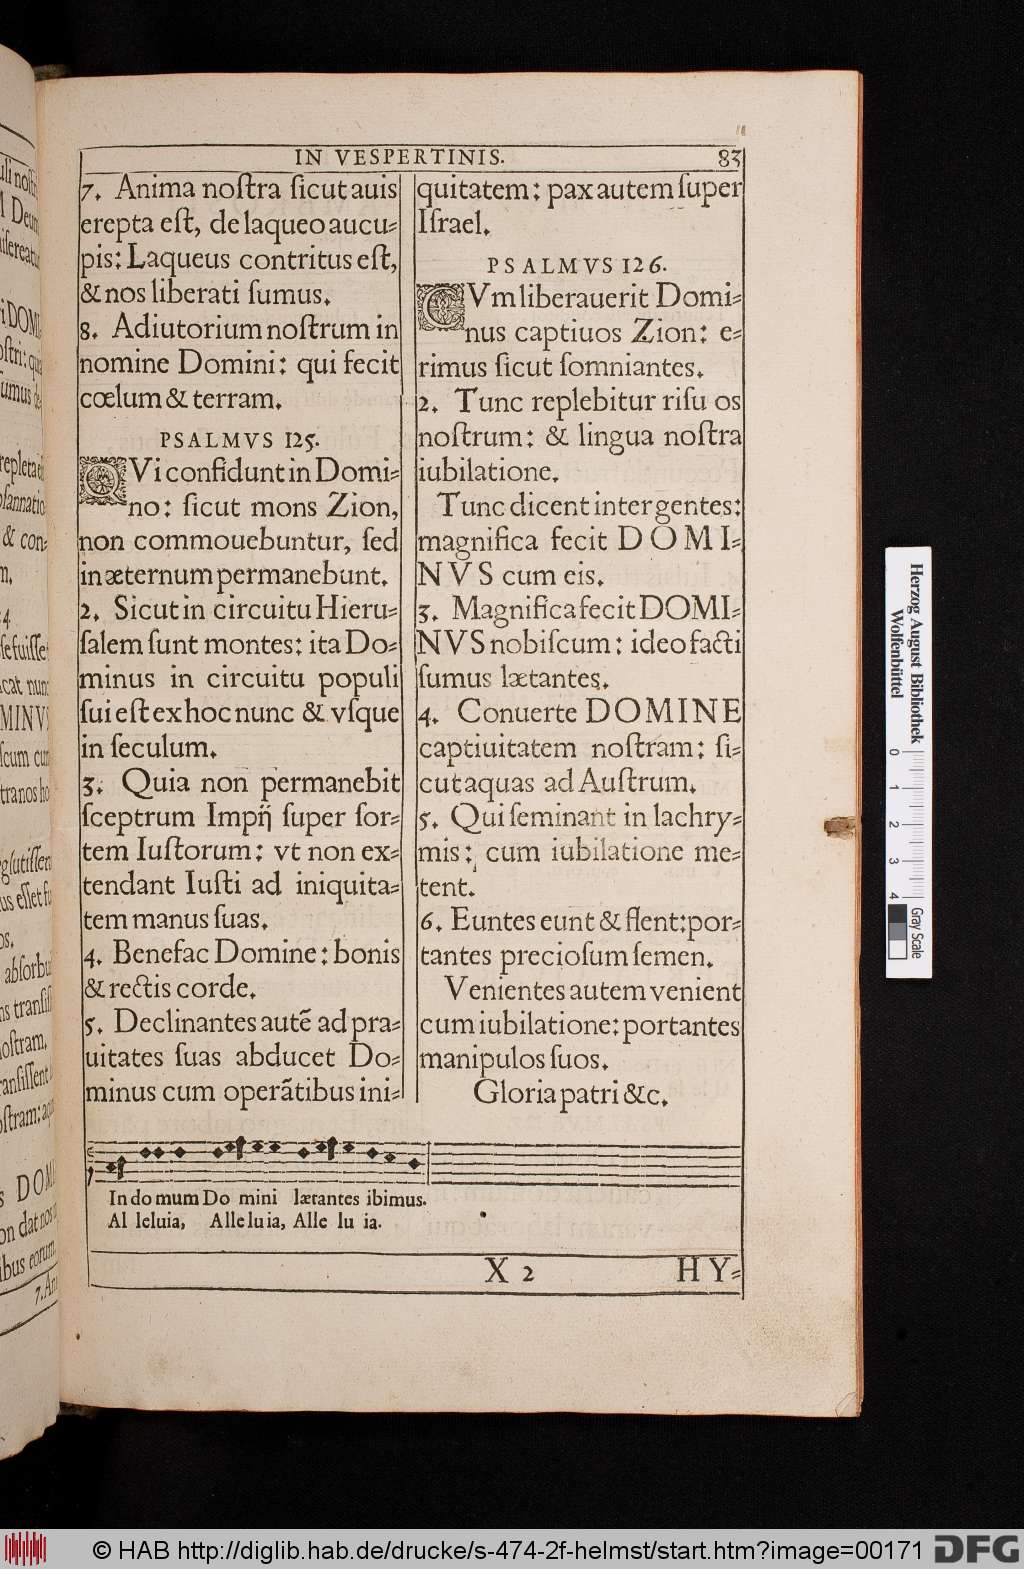 IN VESPERTINIS.
83
7. Anima noſtra ſicut auis
erepta eſt, de laqueo aucu⸗
pis: Laqueus contritus eſt,
& nos liberati ſumus.
8. Adiutorium noſtrum in
nomine Domini: qui fecit
cœlum & terram.
PSALMVS 125.
QVi confidunt in Domi⸗
no: ſicut mons Zion,
non commouebuntur, ſed
in æternum permanebunt.
2. Sicut in circuitu Hieru⸗
ſalem ſunt montes: ita Do⸗
minus in circuitu populi
ſui eſt ex hoc nunc & vſque
in ſeculum.
3. Quia non permanebit
ſceptrum Impij ſuper ſor⸗
tem Iuſtorum: vt non ex⸗
tendant Iuſti ad iniquita⸗
tem manus ſuas.
4. Benefac Domine: bonis
& rectis corde.
5. Declinantes autẽ ad pra⸗
uitates ſuas abducet Do⸗
minus cum operãtibus ini⸗
quitatem: pax autem ſuper
Iſrael.
PSALMVS 126.
CVm liberauerit Domi⸗
nus captiuos Zion: e⸗
rimus ſicut ſomniantes.
2. Tunc replebitur riſu os
noſtrum: & lingua noſtra
iubilatione.
Tunc dicent inter gentes:
magnifica fecit DOMI⸗
NVS cum eis.
3. Magnifica fecit DOMI⸗
NVS nobiſcum: ideo facti
ſumus lætantes.
4. Conuerte DOMINE
captiuitatem noſtram: ſi⸗
cut aquas ad Auſtrum.
5. Qui ſeminant in lachry⸗
mis: cum iubilatione me⸗
tent.
6. Euntes eunt & flent: por⸗
tantes precioſum ſemen.
Venientes autem venient
cum iubilatione: portantes
manipulos ſuos.
Gloria patri &c.
In do mum Do mini lætantes ibimus.
Al leluia, Alleluia, Alle lu ia.
X 2
HY⸗
Herzog August Bibliothek
Wolfenbüttel
0 1 2 3 4
Gray Scale
© HAB http://diglib.hab.de/drucke/s-474-2f-helmst/start.htm?image=00171
DFG